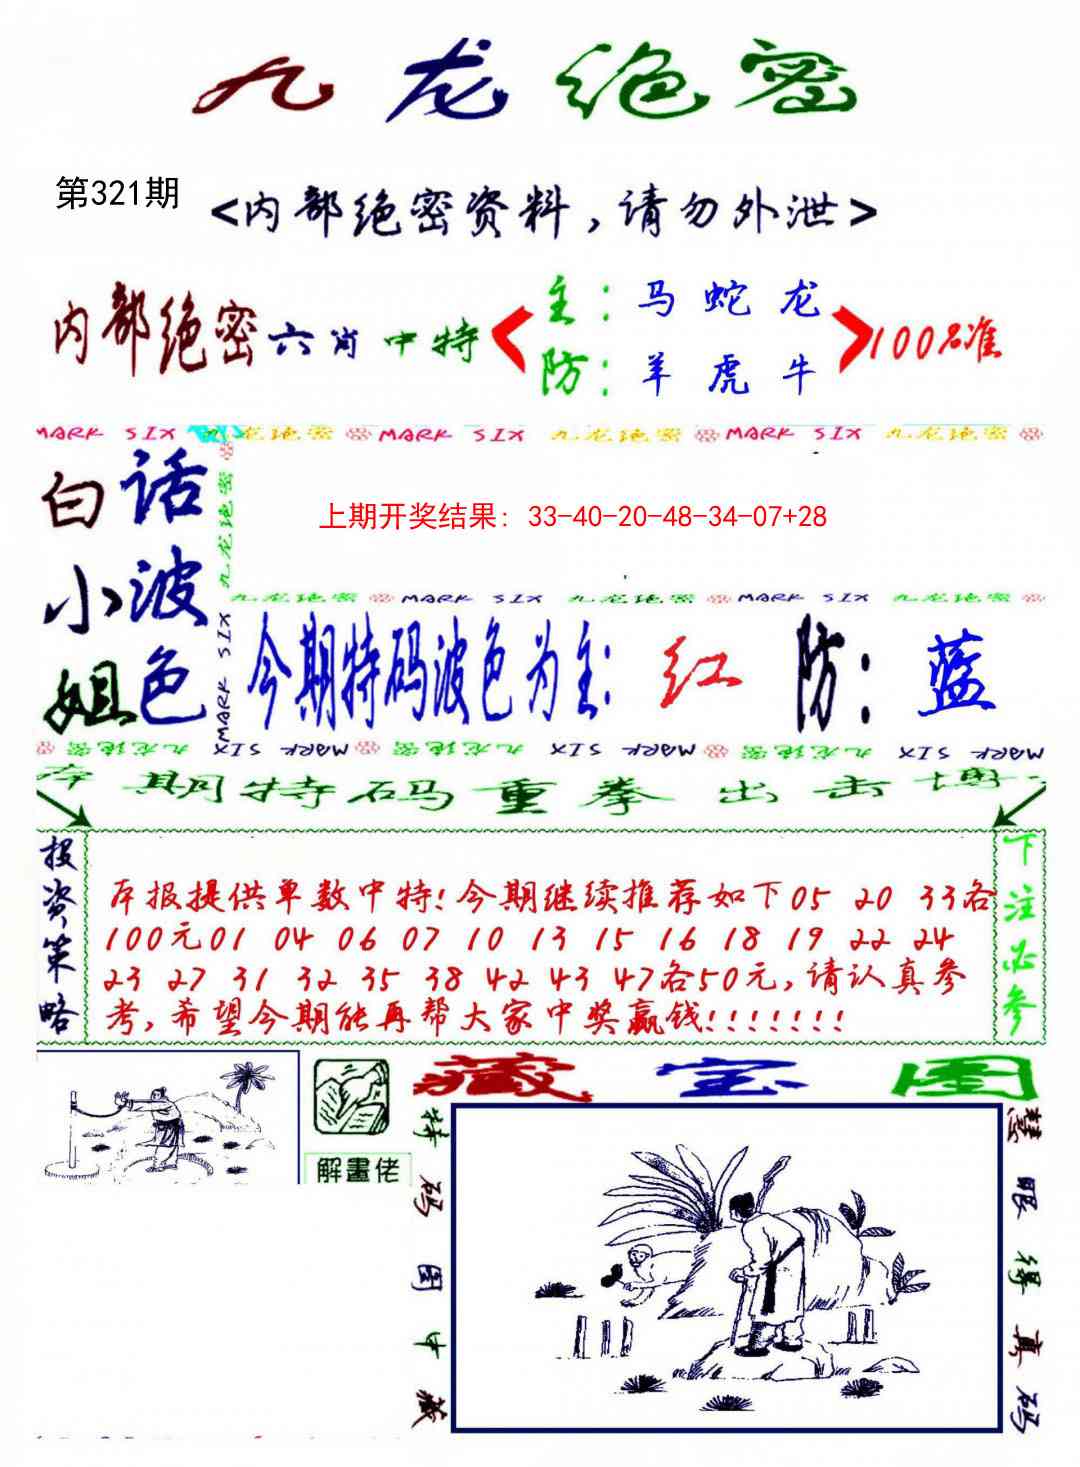 九龙绝密
第321期
<内部绝密资料,请勿外泄>
内部绝密六肖中特
主:马 蛇 龙
防:羊 虎 牛
100%准
MARK SIX 九龙绝密 MARK SIX 九龙绝密 MARK SIX 九龙绝密
白话
小波
姐色
九龙绝密
MARK SIX
上期开奖结果: 33-40-20-48-34-07+28
九龙绝密 MARK SIX 九龙绝密 MARK SIX 九龙绝密
今期特码波色为主: 红 防: 蓝
九龙绝密 MARK SIX 九龙绝密 MARK SIX 九龙绝密 MARK SIX
本期特码重拳出击博
投资策略
本报提供单数中特!今期继续推荐如下05 20 33各
100元01 04 06 07 10 13 15 16 18 19 22 24
23 27 31 32 35 38 42 43 47各50元,请认真参
考,希望今期能再帮大家中奖赢钱!!!!!!!
下注必参
解畫佬
藏宝图
特码图中藏
慧眼得真码